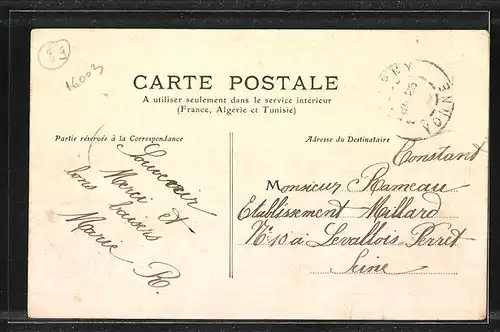 89
16003
CARTE POSTALE
A utiliser seulement dans le service intérieur
(France, Algérie et Tunisie)
Partie réservée à la Correspondance
Adresse du Destinataire
YONNE
Souvenir
Merci et
bons baisers
Marie R.
Constant
Monsieur Rameau
Etablissement Millard
No 10 à Levallois Perret
Seine